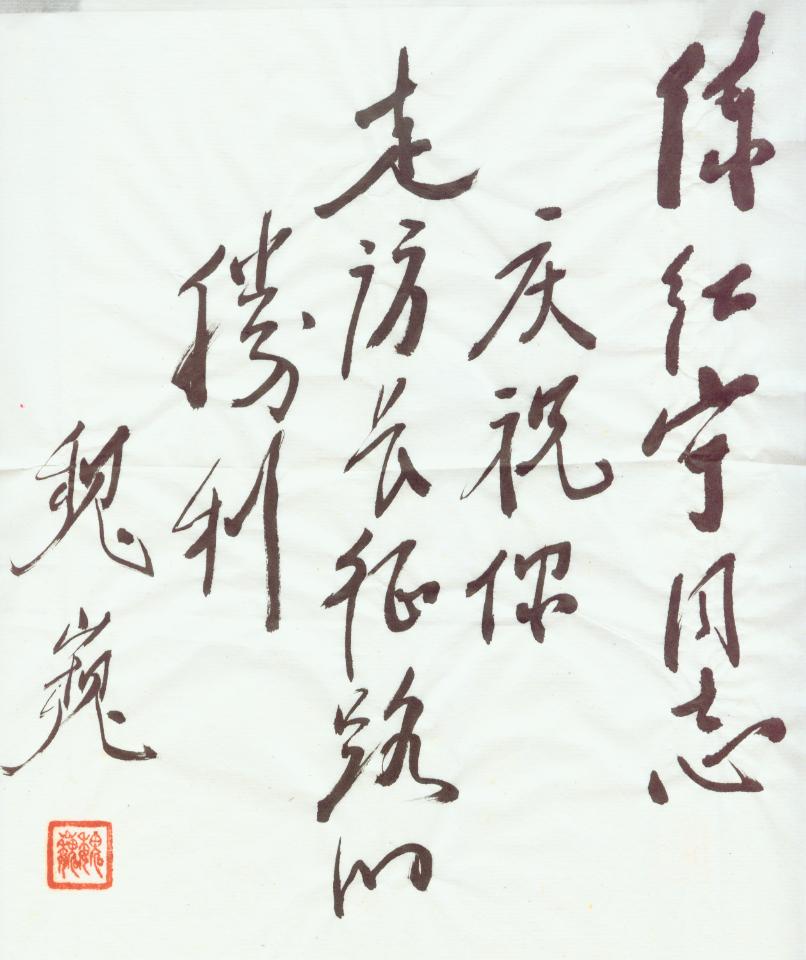 红宁同志
庆祝你
走访长征路的
勝利
魏巍
魏巍